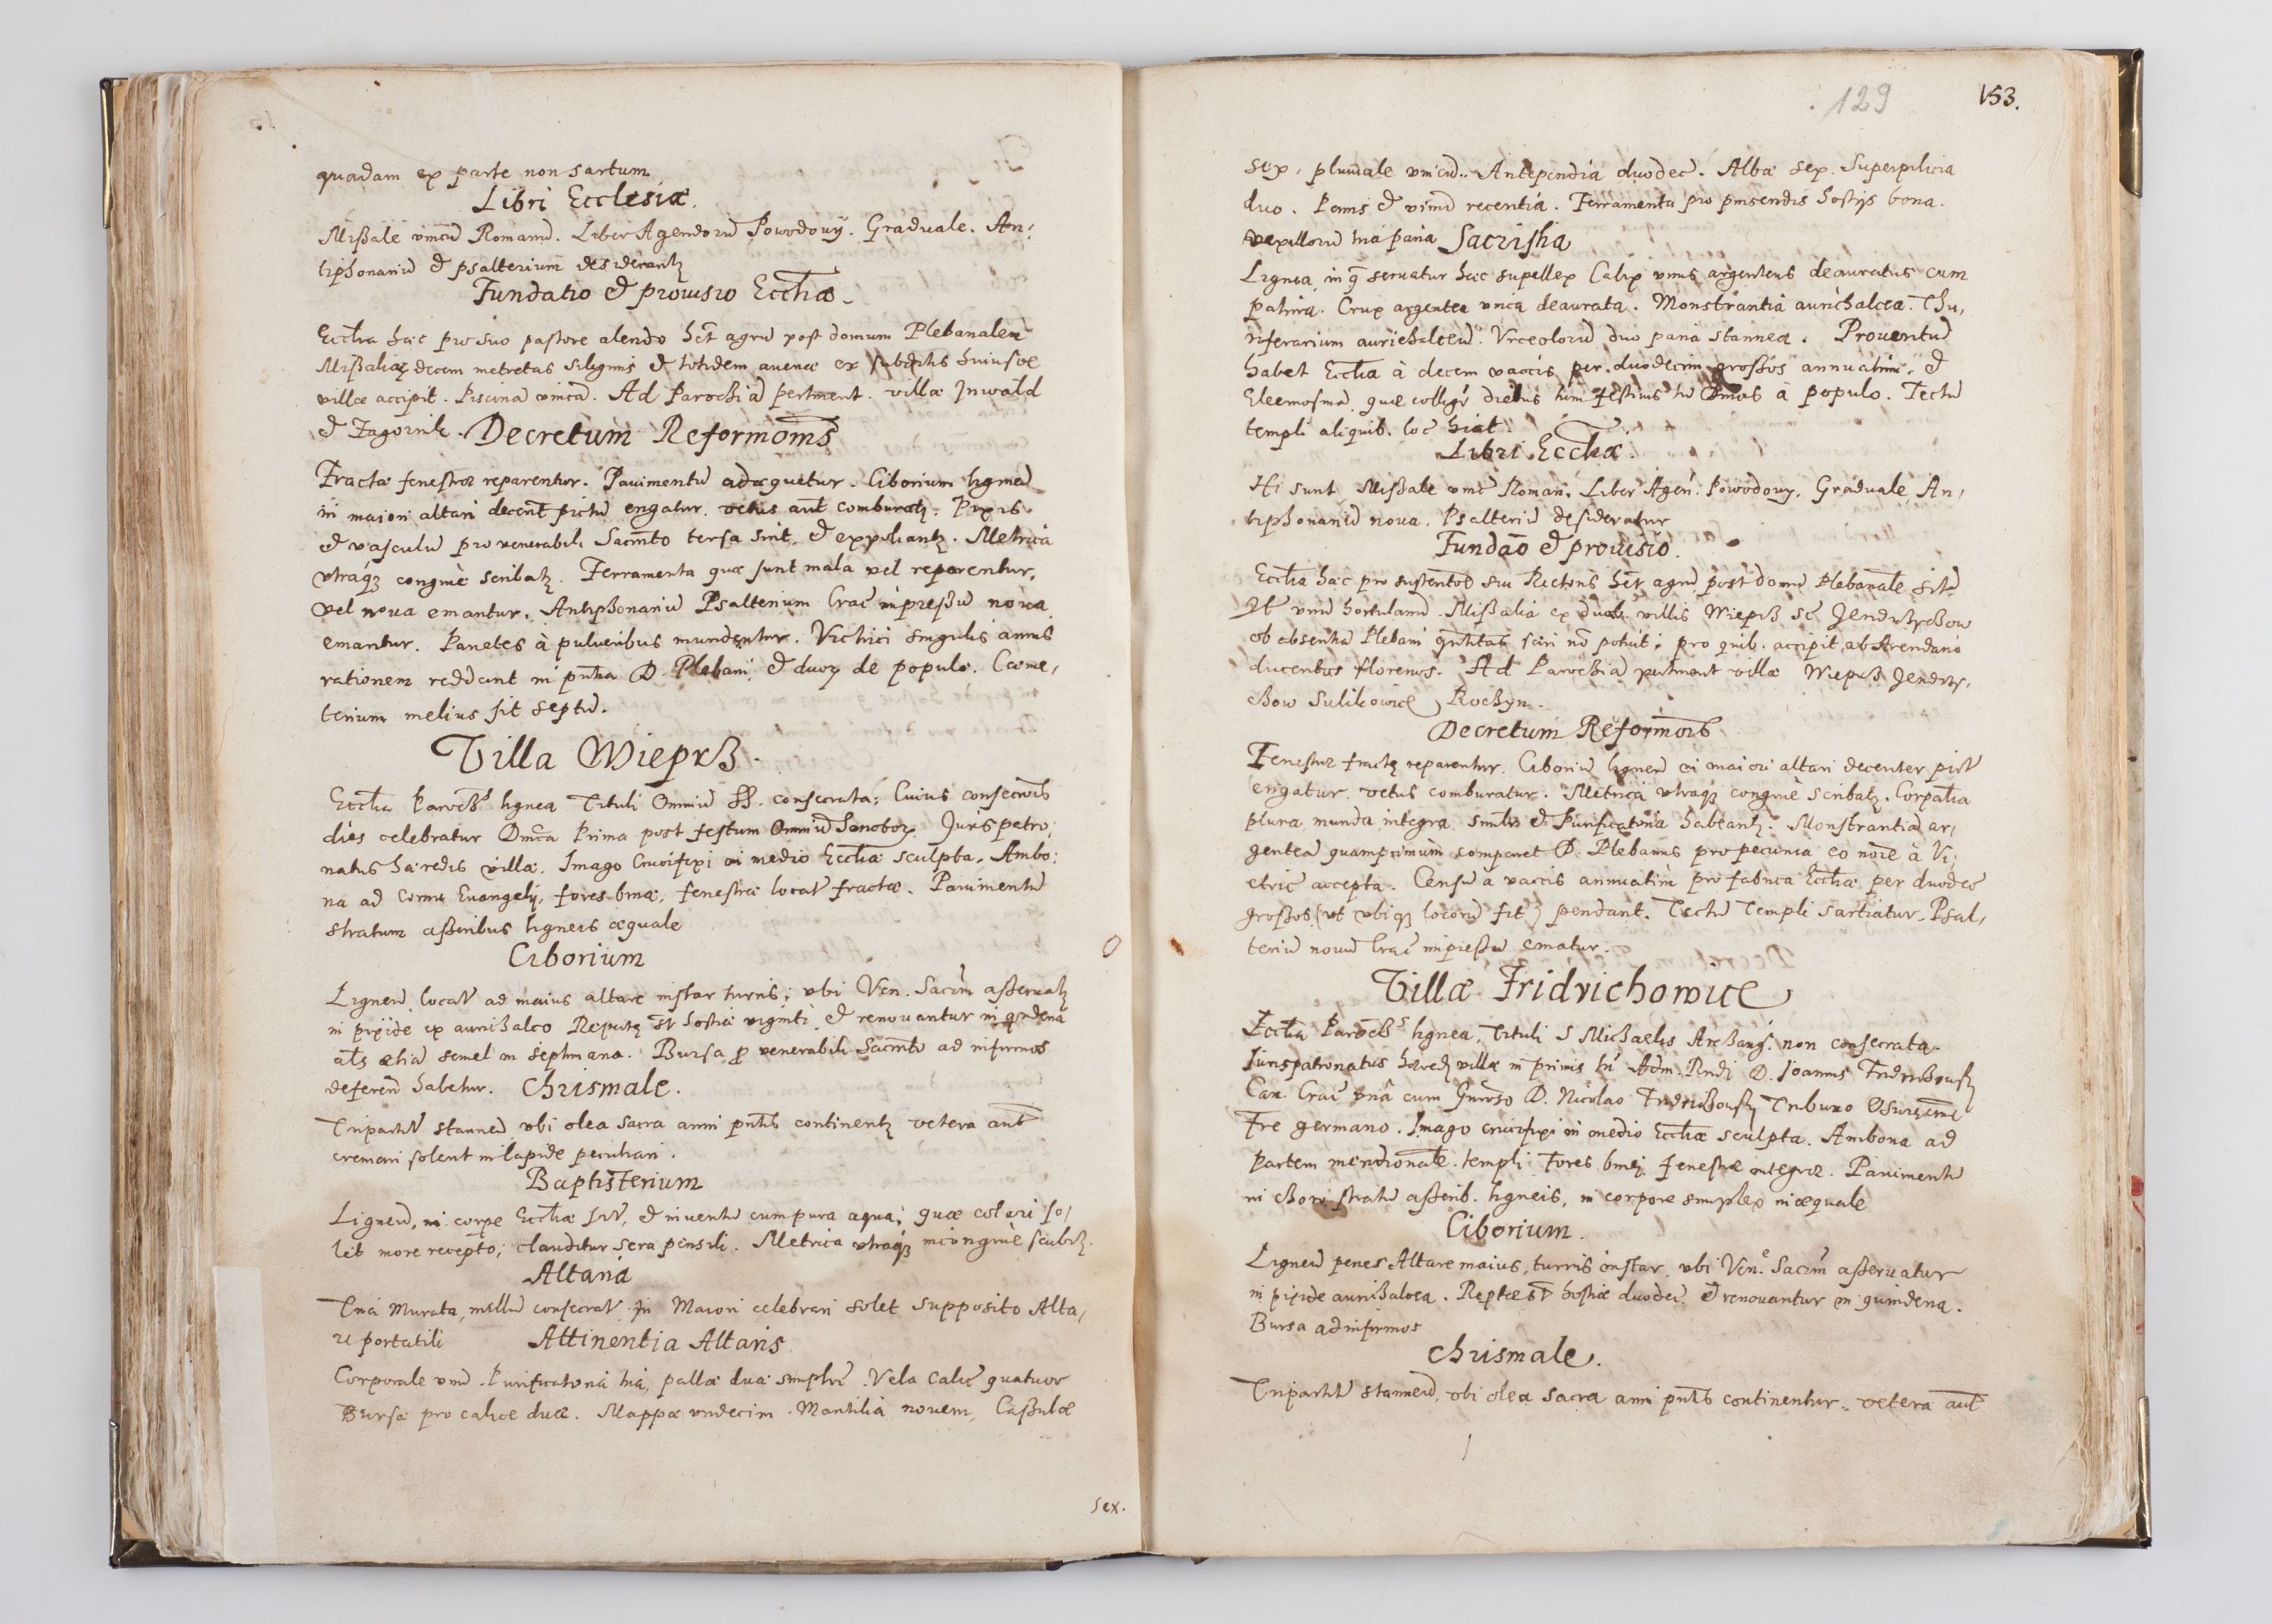 quadam ex parte non sartum
Libri Ecclesiæ.
Mißale vnicũ Romanũ. Liber Agendorũ Powodowỹ. Graduale. An:
tiphonariũ & psalterium desiderantꝫ
Fundatio & prouisio Eccłiæ
Eccłia hæc pro suo pastore alendo hẽt agrũ post domum Plebanalem
Mißaliæ decem metretas siliginis & totidem auenæ ex subditis huiusce
villæ accipit. Piscinã vnicã. Ad Parochiã pertinent villæ Inwałd
& Zagornik. Decretum Reformõnis
Fractæ fenestræ reparentur. Pauimentũ adæquetur. Ciborium ligneũ
in maiori altari decent̃ pictũ erigatur. vetus aut̃ comburatꝫ. Pixis
& vasculũ pro venerabili Sacrñto tersa sint, & expoliantꝫ. Metrica
vtraqꝫ congruè scribatꝫ. Ferramenta quæ sunt mala vel reparentur,
vel noua emantur. Antiphonariũ Psalterium Crac̃ impreßũ noua
emantur. Parietes à pulueribus mundentur. Vitrici singulis annis
rationem reddant in pñtia D. Plebani, & duorꝫ de populo. Cœme,
terium melius sit septũ.
Villa Wieprß.
Eccłia Paroch͂ lignea Tituli Omniũ SS. consecrata; Cuius consecrõis
dies celebratur Dñica Prima post festum Omniũ Sanctorꝫ. Juris patro:
natus hæredis villæ. Imago Crucifixi in medio Eccłiæ sculpta. Ambo:
na ad cornu Euangelij, fores binæ, fenestræ locat̃ fractæ. Pauimentũ
stratum aßeribus ligneis æquale
Ciborium
Ligneũ locat̃ ad maius altare instar turris; vbi Ven. Sacrm̃ aßeruatꝫ
in pixide ex aurichalco Repertę st̃ hostiæ viginti, & renouantur in qndena
als etiã semel in septimana. Bursa ꝓ venerabili Sacrñto ad infirmos
deferen̄ habetur. Chrismale.
Tripartit̃ stanneũ vbi olea sacra anni pñtis continentꝫ vetera aut̃
cremari solent in lapide peculiari.
Baptisterium
Ligneũ, in corpe Eccłiæ sit̃, & inuentũ cum pura aqua; quæ colari so/
let more recepto; clauditur sera pensili. Metrica vtraqꝫ incongruè scribitꝫ.
Altaria
Tria Murata, nullũ consecrat̃. In Maiori celebrari solet supposito Alta,
re portatili Attinentia Altaris
Corporale vnũ. Purificatoria tria, pallæ duæ simplic̃. Vela Calic̃ quatuor
Bursæ pro calice duæ. Mappæ vndecim. Mantilia nouem, Caßulæ
sex.
129
153.
sex, pluuiale vnicũ. Antependia duodec̃. Albæ sex. Superpilicia
duo. Panis & vinũ recentia. Ferramenta pro pinsendis hostijs bona.
vexillorũ tria paria Sacristia
Lignea, in q̃ seruatur hæc supellex Calix vnus argenteus deauratus cum
patina. Crux argentea vnica deaurata. Monstrantia aurichalcea. Thu,
riferarium aurichalceũ. Vrceolorũ duo paria stannea. Prouentũ
habet Eccłia à decem vaccis per duodecim großos annuatim, &
Eleemosinã, quæ colligi diebus tum festiuis tũ Dñicis à populo. Tectũ
templi aliquib. loc̃ hiat.
Libri Eccłiæ.
Hi sunt Mißale vnic̃ Roman. Liber Agen̄. Powodowy. Graduale, An,
tiphonariũ noua. Psalteriũ desideratur
Fundaõ & prouisio.
Eccłia hæc pro sustentõe sui Rectoris hẽt agrũ post domũ Plebanalẽ sitũ
It̃ vnũ hortulanũ. Mißalia ex duab. villis Wieprß sc̃ Jendrzychow
ob absentiã Plebani qntitas sciri nõ potuit; pro quib. accipit ab Arendario
ducentos florenos. Ad Parochiã pertinent villæ Wieprß Jendrzy,
chow Sulikowice, Rochyn.
Decretum Reformõis
Fenestræ fractę reparentur. Ciboriũ ligneũ in maiori altari decenter pict̃
erigatur, vetus comburatur. Metrica vtraqꝫ congruè scribatꝫ. Corpalia
plura, munda, integra, similr̃ & Purificatoria habeantꝫ. Monstrantiã ar,
genteã quamprimum comparet D. Plebanus pro pecunia eo noĩe à Vi,
tric̃ accepta. Censũ à vaccis annuatim pro fabrica Eccłiæ per duodec̃
großos (vt vbiqꝫ locorũ fit) pendant. Tectũ Templi sartiatur. Psal,
teriũ nouũ Crac̃ impreßũ ematur.
Villæ Fridrichowice
Eccłia Paroch͂ lignea, Tituli S Michaelis Archang̃. non consecrata.
Jurispatronatus hæred̃ villæ in primis tũ Adm. Rndi D. Joannis Fridrichowsꝫ
Can. Crac̃ vnâ cum Gnroso D. Nicolao Fridrichowsꝫ Tribuno Oswiecime
Fre germano. Imago crucifixi in medio Eccłiæ sculpta. Ambona ad
Partem meridionalẽ templi. Fores binę. fenestræ integræ. Pauimentũ
in choro stratũ aßerib. ligneis, in corpore simplex inæquale
Ciborium.
Ligneũ penes Altare maius, turris instar, vbi Ven. Sacrm̃ aßeruatur
in pixide aurichalcea. Reptæ st̃ hostiæ duodec̃, & renouantur in quindena.
Bursa ad infirmos
Chrismale.
Tripartit̃ stanneũ, vbi olea sacra anni pñtis continentur. vetera aut̃